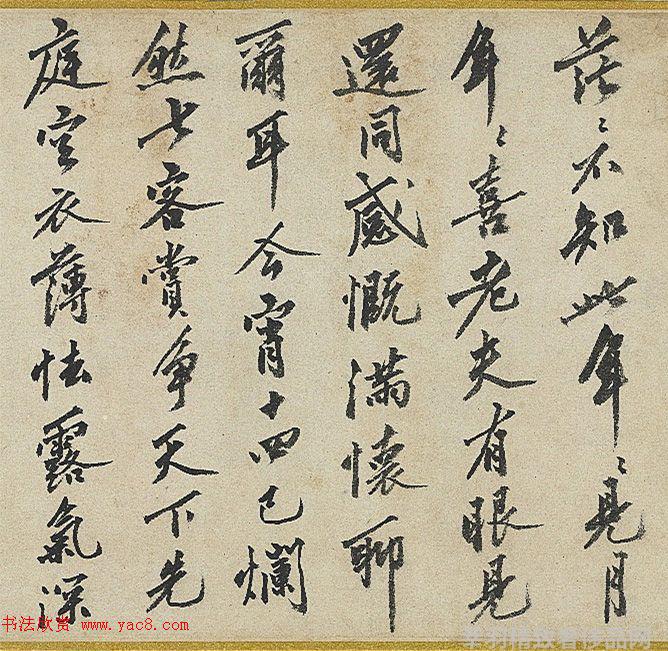 茫〻不知此年〻見月
年〻喜老夫有眼見
還同感慨滿懷聊
爾耳今宵十四已爛
然七客賞爭天下先
庭空衣薄怯露氣深
书法欣赏 www.yac8.com